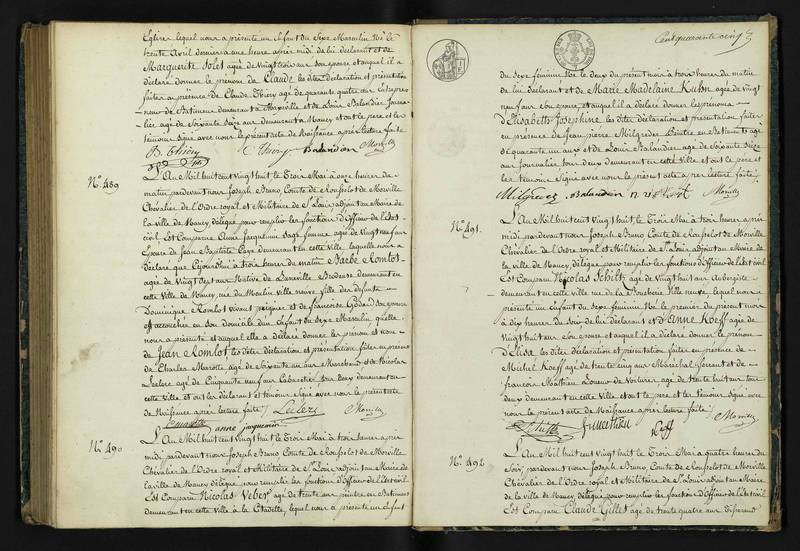 Eglise lequel nous a présenté un Enfant du Sexe Masculin Né le
trente Avril dernier à une heure après midi de lui déclarant et de
Marguerite Jolet agée de Vingt trois ans son épouse et auquel il a
déclaré donner le prénom de Claude, les dites déclaration et présentation
faites en présence de Claude Thiéry agé de quarante quatre ans
neur de Batimens demeurant à Maxéville et de Louis Balandier
agé de Soixante Seize ans demeurant à Nancy et ont le père et les
témoins Signé avec nous le présent acte de Naissance après lecture faite
B. Thiéry C Thiery Balandier
N.º 489
L'An Mil huit cent Vingt huit le Trois Mai à onze heures du
matin pardevant nous Joseph Bruno Comte de Rousselot de Morville
Chevalier de l'Ordre royal et Militaire de St Louis adjoint au Maire de
la ville de Nancy, délégué pour remplir les fonctions d'Officier de l'état
civil, Est Comparue Anne Jacquemin Sage femme agée de Vingt neuf ans
Epouse de Jean Baptiste demeurant en cette Ville, laquelle nous a
déclaré que Cejourd'hui à trois heures du matin Barbe Romlot
agée de Vingt Sept ans Native de Lunéville Brodeuse demeurant en
cette Ville de Nancy, rue du Moulin Ville neuve, fille des défunts
Dominique Romlot vivant peigneur et de françoise Godard son épouse
est accouchée en son domicile d'un Enfant du Sexe Masculin qu'elle
nous a présenté et auquel elle a déclaré donner les prénom et nom
de Jean Romlot les dites déclaration et présentation faites en présence
de Charles Marotte agé de Soixante ans et de Nicolas
Leclerc agé de Cinquante neuf ans Cabaretier tous deux demeurant en
cette Ville et ont les déclarant et témoins Signé avec nous le présent acte
de Naissance après lecture faite. Leclerc
anne jacquemin
N.º 490
L'An Mil huit cent Vingt huit le Trois Mai à trois heures après
midi pardevant nous Joseph Bruno Comte de Rousselot de Morville
Chevalier de l'Ordre royal et Militaire de St Louis adjoint au Maire de
la Ville de Nancy délégué pour remplir les fonctions d'Officier de l'état civil
Est Comparu Nicolas Veber, agé de trente ans peintre en Batimens
demeurant en cette ville à la Citadelle, lequel nous a présenté un Enfant
Cent quarante cinq
du Sexe féminin Né le deux du présent mois à trois heures du matin
de lui déclarant et de Marie Madelaine Kuhn agée de vingt
neuf ans son épouse, et auquel il a déclaré donner les prénoms
d'Elisabeth Josephine, les dites déclaration et présentation faites
en présence de Jean pierre Milgreder Peintre en Batimens agé
de quarante un ans et de Louis Balandier agé de Soixante Seize
ans Journalier tous deux demeurant en cette ville et ont le père et
les témoins Signé avec nous le présent acte après lecture faite.
Balandier
N.º 491.
L'An Mil huit cent Vingt huit le Trois Mai à trois heures après
midi pardevant nous Joseph Bruno Comte de Rousselot de Morville
Chevalier de l'Ordre royal et Militaire de St Louis adjoint au Maire de
la ville de Nancy, délégué pour remplir les fonctions d'Officier de l'état civil
Est Comparu Nicolas Schiltz agé de Vingt huit ans Aubergiste
demeurant en cette ville rue de la Boucherie Ville neuve, lequel nous a
présenté un Enfant du Sexe féminin Né le premier du présent mois
à dix heures du Soir de lui déclarant et d'Anne Koeff agée de
Vingt huit ans son épouse et auquel il a déclaré donner le prénom
d'Elisa, les dites déclaration et présentation faites en présence de
Michel Koeff agé de trente cinq ans Maréchal ferrant et de
françois Mathieu Loueur de Voitures, agé de trente huit ans tous
deux demeurant en cette Ville et ont le père et les témoins Signé avec
nous le présent acte de Naissance après lecture faite.
Schiltz f mathieu Koeff
N.º 492
L'An Mil huit cent Vingt huit le Trois Mai à quatre heures du
Soir, pardevant nous Joseph Bruno Comte de Rousselot de Morville
Chevalier de l'Ordre royal et Militaire de St Louis adjoint au Maire
de la ville de Nancy, délégué pour remplir les fonctions d'Officier de l'état civil
Est Comparu Claude Gillet agé de trente quatre ans